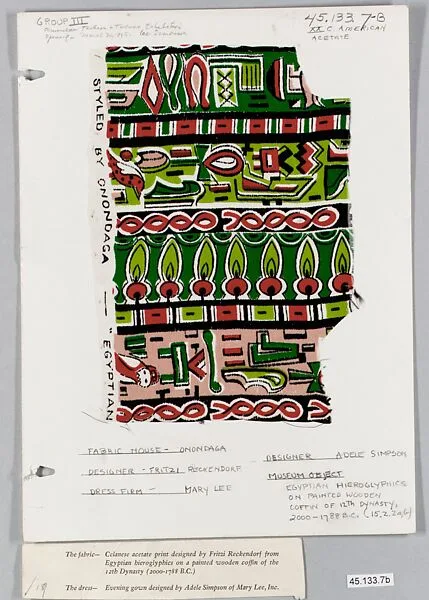 GROUP III
45.133 7-B
XX C AMERICAN
ACETATE
STYLED BY ONONDAGA — "EGYPTIAN
FABRIC HOUSE - ONONDAGA
DESIGNER - FRITZI RECKENDORF
DRESS FIRM - MARY LEE
DESIGNER ADELE SIMPSON
MUSEUM OBJECT
EGYPTIAN HIEROGLYPHICS
ON PAINTED WOODEN
COFFIN OF 12TH DYNASTY,
2000-1788 B.C. (15.2.2a,b)
The fabric— Celanese acetate print designed by Fritzi Reckendorf from
Egyptian hieroglyphics on a painted wooden coffin of the
12th Dynasty (2000-1788 B.C.)
The dress— Evening gown designed by Adele Simpson of Mary Lee, Inc.
45.133.7b